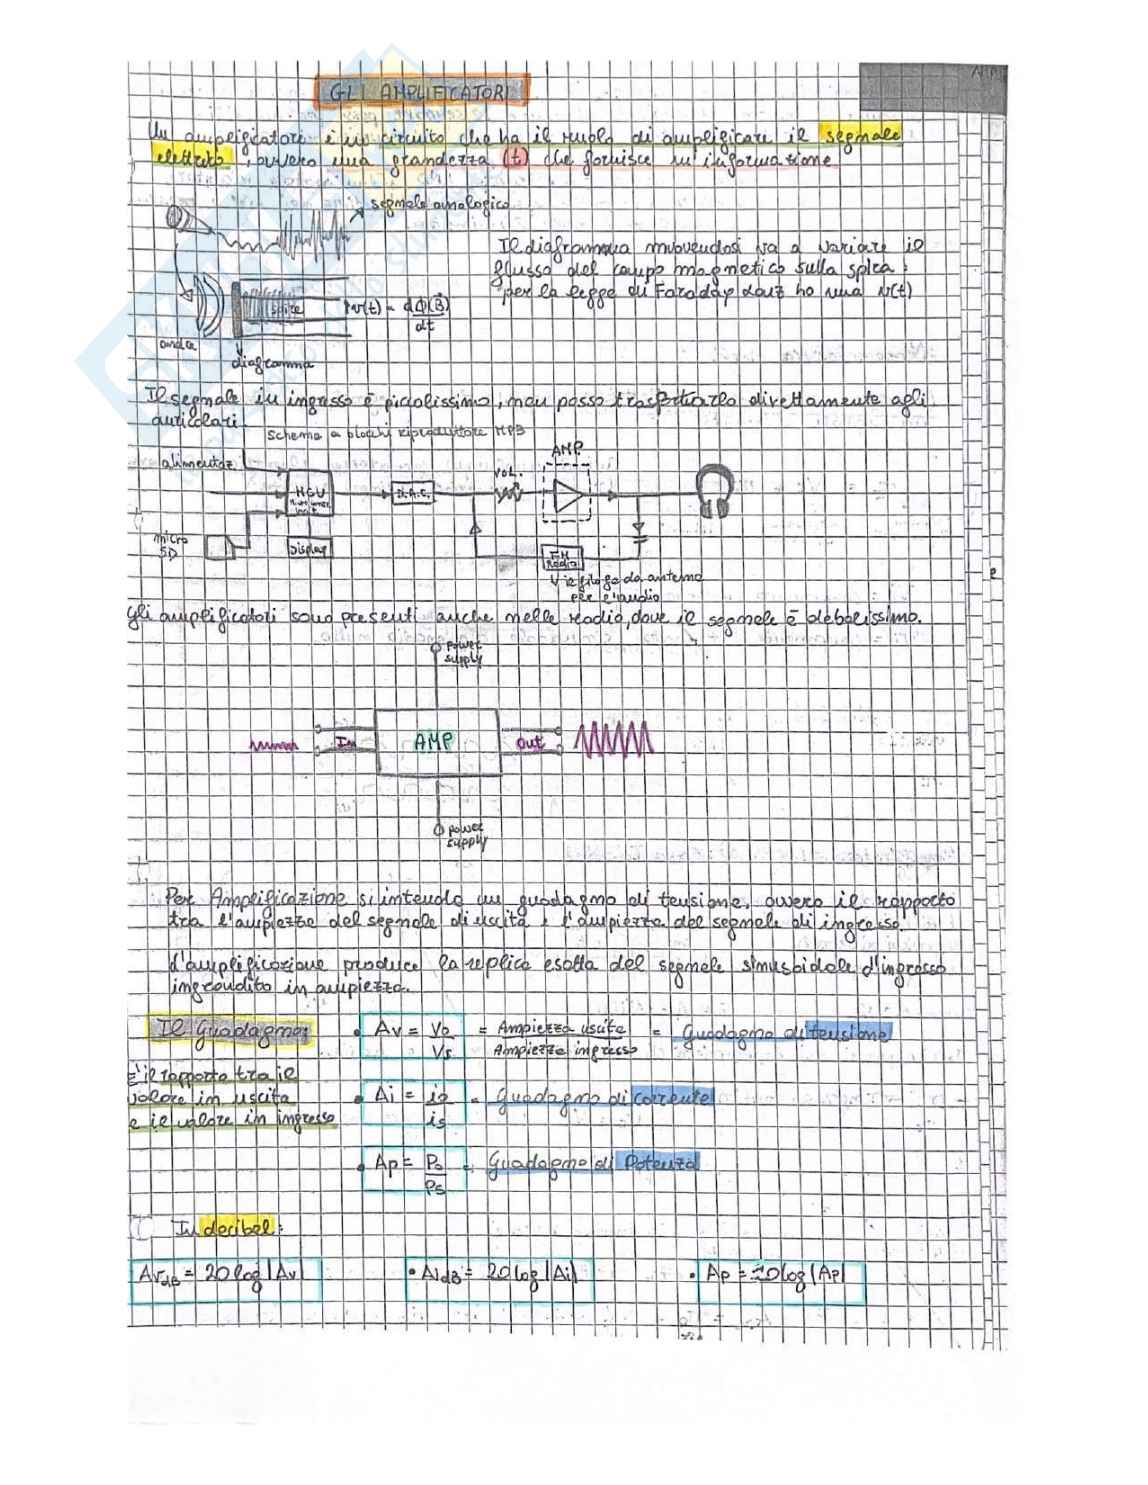 GLI AMPLIFICATORI
Un amplificatore è un circuito che ha il ruolo di amplificare il segnale
elettrico, ovvero una grandezza (t) che fornisce un'informazione
segnale analogico
Il diaframma muovendosi va a variare il
flusso del campo magnetico sulla spira:
per la legge di Faraday Lenz ho una v(t)
spire
v(t) = dΦ(B)
dt
onda
diaframma
Il segnale in ingresso è piccolissimo, non posso trasportarlo direttamente agli
auricolari.
Schema a blocchi riproduttore MP3
AMP
alimentaz
VOL.
MCU
D.A.C.
micro
SD
Display
FM
Radio
Il filo fa da antenna
per l'audio
Gli amplificatori sono presenti anche nelle radio, dove il segnale è debolissimo.
power
supply
In
AMP
Out
power
supply
Per Amplificazione si intende un guadagno di tensione, ovvero il rapporto
tra l'ampiezza del segnale di uscita e l'ampiezza del segnale di ingresso.
L'amplificazione produce la replica esatta del segnale sinusoidale d'ingresso
ingrandito in ampiezza.
Il Guadagno:
• Av = Vo = Ampiezza uscita = Guadagno di tensione
Vs Ampiezza ingresso
È il rapporto tra il
valore in uscita
e il valore in ingresso
• Ai = io = Guadagno di corrente
is
• Ap = Po = Guadagno di Potenza
Ps
In decibel:
AvdB = 20log|Av|
• AidB = 20log|Ai|
• Ap = 10log|Ap|